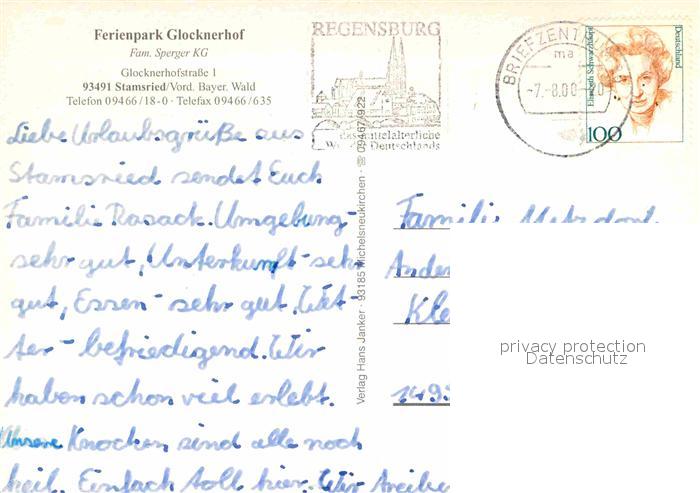 Ferienpark Glocknerhof
Fam. Sperger KG
Glocknerhofstraße 1
93491 Stamsried/Vord. Bayer. Wald
Telefon 09466/18-0 · Telefax 09466/635
REGENSBURG
das mittelalterliche
Deutschlands
BRIEFZENT
ma
-7.-8.00
Elisabeth Schwarzhaupt
Deutschland
100
Liebe Urlaubsgrüße aus
Stamsried sendet Euch
Familie Rasack. Umgebung-
sehr gut, Unterkunft-sehr
gut, Essen-sehr gut, Wet-
ter-befriedigend. Wir
haben schon viel erlebt.
Unsere Knochen sind alle noch
heil. Einfach toll hier. Wir
Verlag Hans Janker · 93185 Michelsneukirchen · ☎ 09467/922
Familie
Kle
1493
privacy protection
Datenschutz